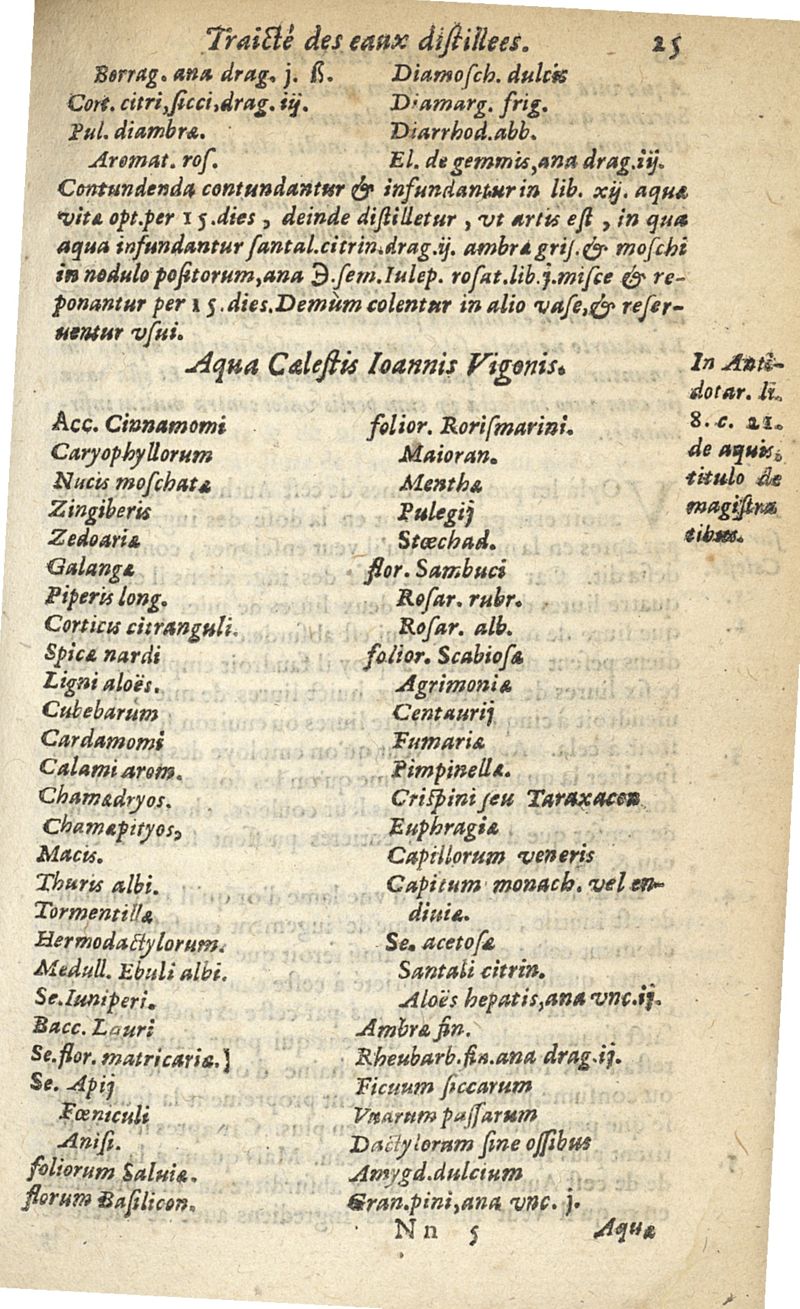 Traicté des eaux distillees. 25
Borrag. ana drag. j. ß.
Cort. citri, sicci, drag. iij.
Pul. diambræ.
Aromat. ros.
Diamosch. dulcis
Diamarg. frig.
Diarrhod. abb.
El. de gemmis, ana drag. iij.
Contundenda contundantur & infundantur in lib. xij. aquæ
vitæ opt. per 15. dies, deinde distilletur, vt artis est, in qua
aqua infundantur santal. citrin. drag. ij. ambræ gris. & moschi
in nodulo positorum, ana ℈. sem. Iulep. rosat. lib. j. misce & re-
ponantur per 15. dies. Demùm colentur in alio vase, & reser-
uentur vsui.
Aqua Cælestis Ioannis Vigonis.
In Anti-
dotar. li.
8. c. 21.
de aquis,
titulo de
magistra
tibus.
Acc. Cinnamomi
Caryophyllorum
Nucis moschatæ
Zingiberis
Zedoariæ
Galangæ
Piperis long.
Corticis citranguli.
Spicæ nardi
Ligni aloës.
Cubebarum
Cardamomi
Calami arom.
Chamædryos.
Chamæpityos,
Macis.
Thuris albi.
Tormentillæ
Hermodactylorum.
Medull. Ebuli albi.
Se. Iuniperi.
Bacc. Lauri
Se. flor. matricariæ.]
Se. Apij
Fœniculi
Anisi.
foliorum Saluiæ.
florum Basilicon.
folior. Rorismarini.
Maioran.
Menthæ
Pulegij
Stœchad.
flor. Sambuci
Rosar. rubr.
Rosar. alb.
folior. Scabiosæ
Agrimoniæ
Centaurij
Fumariæ
Pimpinellæ.
Crispini seu Taraxacon
Euphragiæ
Capillorum veneris
Capitum monach. vel en-
diuiæ.
Se. acetosæ
Santali citrin.
Aloës hepatis, ana vnc. ij.
Ambræ fin.
Rheubarb. fin. ana drag. ij.
Ficuum siccarum
Vuarum passarum
Dactylorum sine ossibus
Amygd. dulcium
Gran. pini, ana vnc. j.
Nn 5 Aquæ